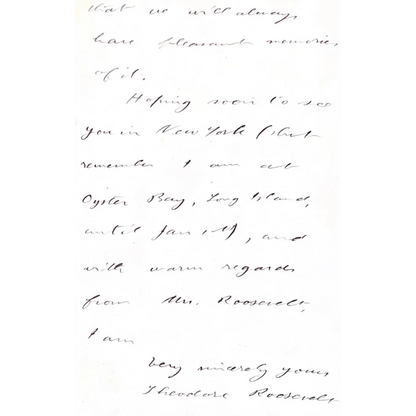 that we will always
have pleasant memories
of it.
Hoping soon to see
you in New York (but
remember I am at
Oyster Bay, Long Island,
until Jan 1st), and
with warm regards
from Mrs. Roosevelt,
I am
Very sincerely yours
Theodore Roosevelt